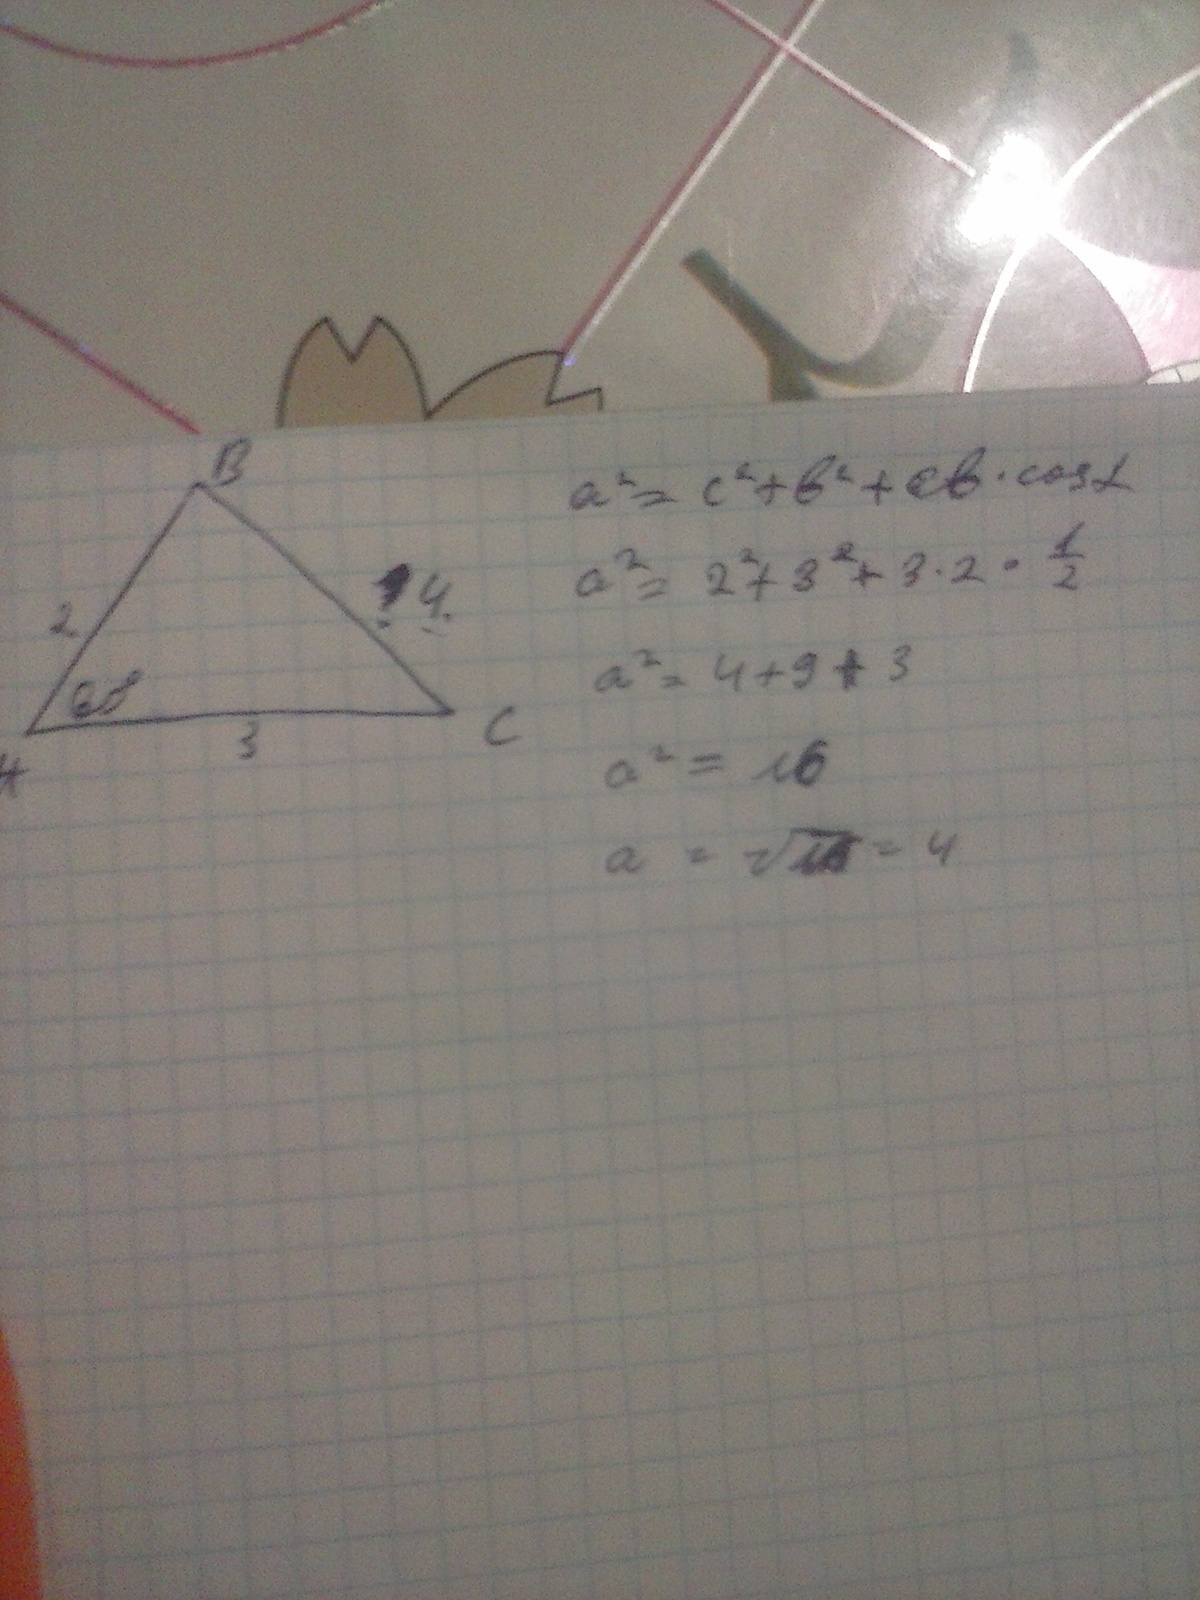 B
2
4
60°
3
C
A
a² = c² + b² + cb · cos α
a² = 2² + 3² + 3 · 2 · 1/2
a² = 4 + 9 + 3
a² = 16
a = √16 = 4